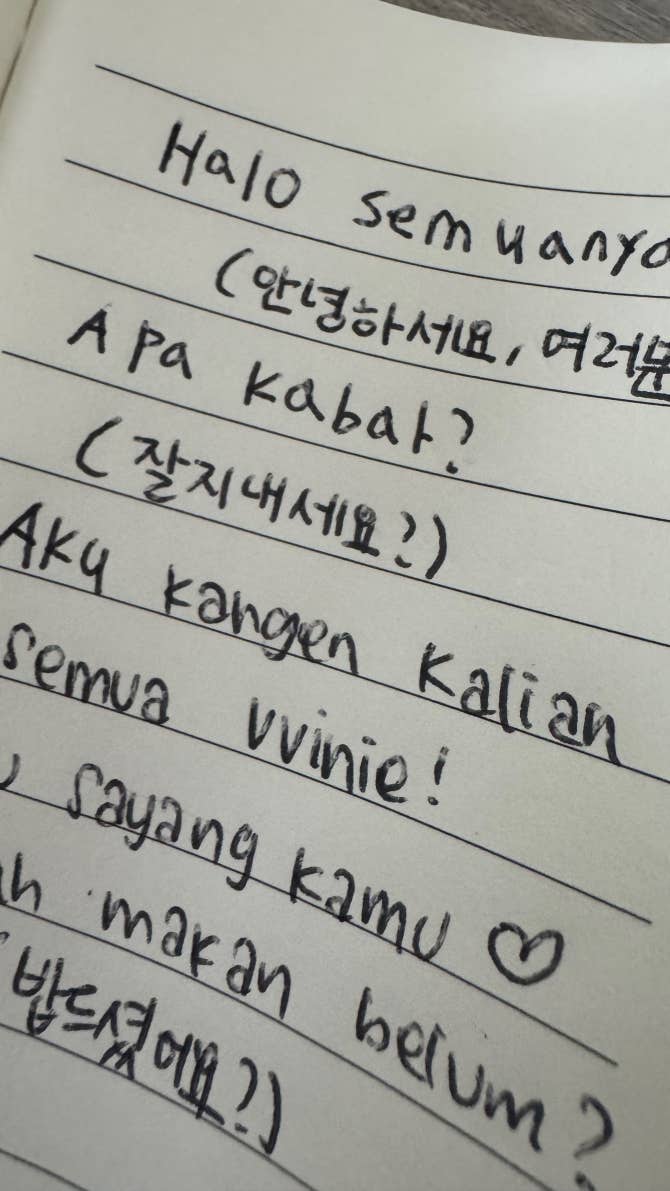 Halo semuanya
(안녕하세요, 여러분
Apa kabar?
(잘지내세요?)
Aku kangen kalian
semua vvinie!
u sayang kamu ♡
ah makan belum?
밥드셨어요?)